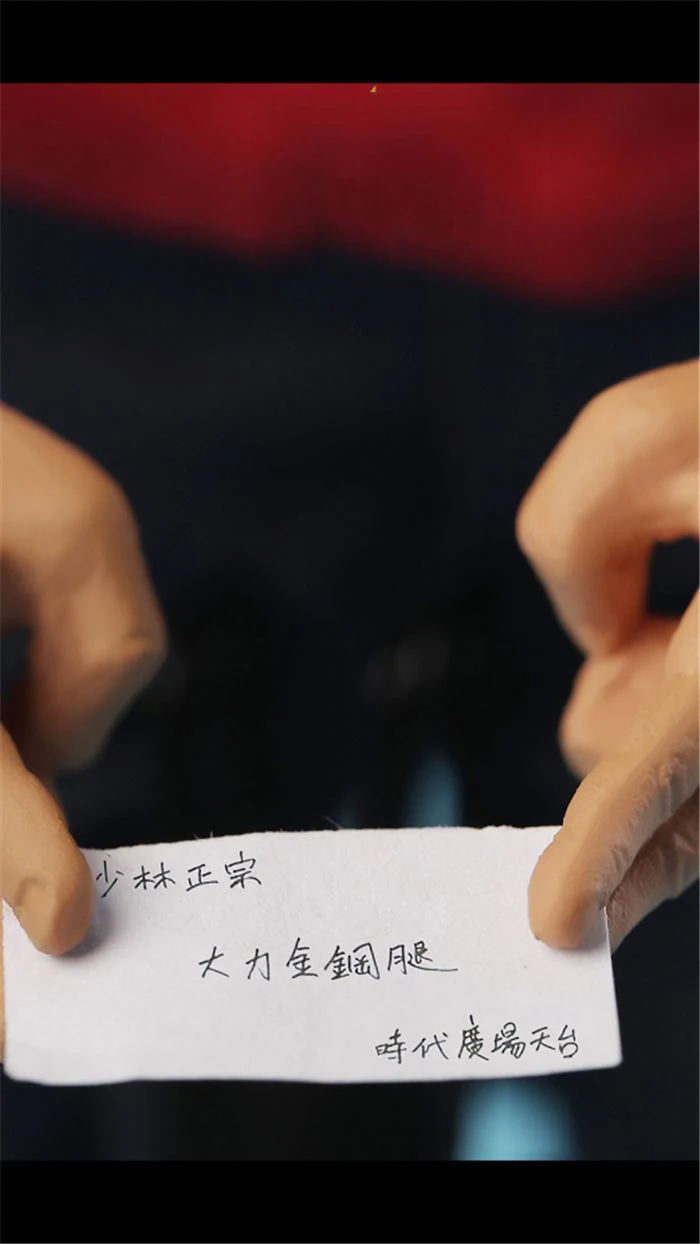 少林正宗
大力金鋼腿
時代廣場天台